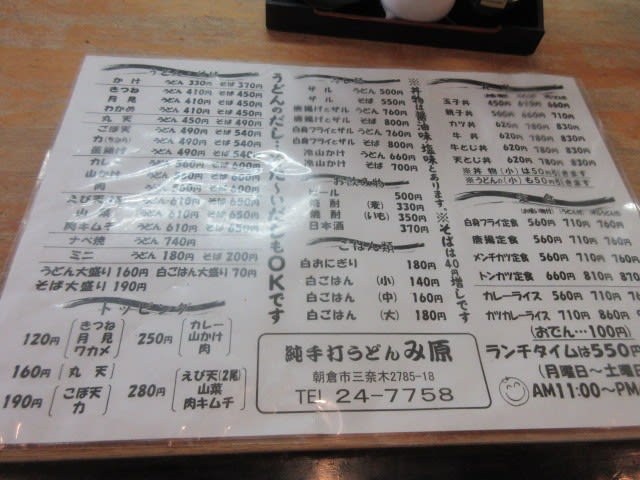 うどん
かけ うどん 330円 そば 370円
きつね うどん 410円 そば 450円
月見 うどん 410円 そば 450円
わかめ うどん 410円 そば 450円
丸天 うどん 450円 そば 490円
ごぼ天 うどん 490円 そば 540円
力 うどん 490円 そば 540円
カレー うどん 560円 そば 600円
山かけ うどん 560円 そば 600円
肉 うどん 560円 そば 600円
えび天(2尾) うどん 610円 そば 650円
山菜 うどん 610円 そば 650円
肉キムチ うどん 610円 そば 650円
ナベ焼 うどん 740円
ミニ うどん 180円 そば 200円
うどん大盛り 160円 白ごはん大盛り 70円
そば大盛り 190円
トッピング
120円 きつね 月見 ワカメ
250円 カレー 山かけ 肉
160円 丸天
190円 ごぼ天 力
280円 えび天(2尾) 山菜 肉キムチ
うどんのだし
OKです
ザル うどん 500円
ザル そば 550円
唐揚げとザル うどん 760円
唐揚げとザル そば 800円
白身フライとザル うどん 760円
白身フライとザル そば 800円
冷山かけ うどん 660円
冷山かけ そば 700円
お飲み物
ビール 500円
焼酎 (麦) 330円
焼酎 (いも) 350円
日本酒 370円
ごはん類
白おにぎり 180円
白ごはん (小) 140円
白ごはん (中) 160円
白ごはん (大) 180円
※丼物は醤油味塩味とあります。※そばは40円増しです
玉子丼 450円 610円 660円
親子丼 660円 710円
カツ丼 620円 780円 830円
牛丼 620円 780円 830円
牛とじ丼 620円 780円 830円
天とじ丼 620円 780円 830円
※丼物(小)は50円引きます
※うどんの(小)も50円引きます
定食
白身フライ定食 560円 710円 760円
唐揚定食 560円 710円 760
メンチカツ定食 560円 710円 760
トンカツ定食 660円 810円 870
カレーライス 560円 710円 76
カツカレーライス 660円 710円 86
(おでん…100円)
ランチタイムは550円
(月曜日～土曜日
AM11:00～PM
純手打うどん み原
朝倉市三奈木2785-18
TEL 24-7758